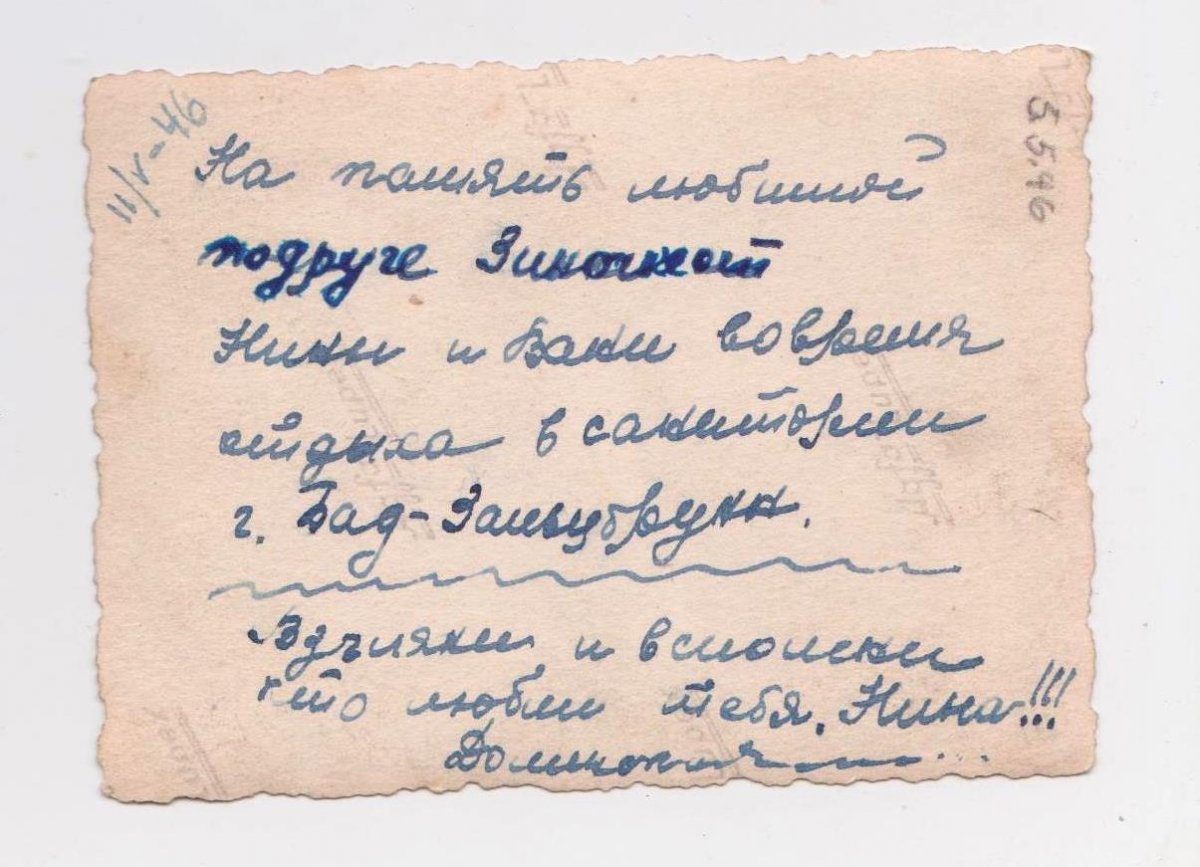 11/V-46
5 5.46
На память любимой
подруге Зиночке от
Нины и Вани во время
отдыха в санитории
г. Бад-Зальцбрунн.
Взгляни и вспомни
кто любил тебя. Нина!!!